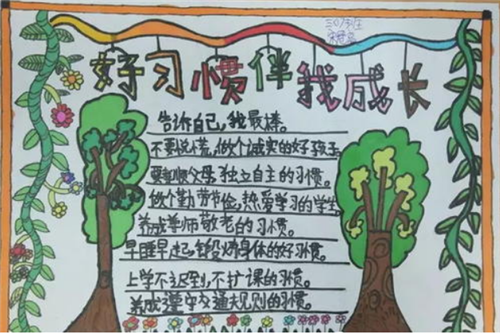 好习惯伴我成长
告诉自己,我最棒。
不要说谎,做个诚实的好孩子。
父母独立自主的习惯。
做个勤劳节俭,热爱学习的学生
养成尊师敬老的习惯。
早睡早起,锻炼身体的好习惯。
上学不迟到,不扩课的习惯。
养成遵守交通规则的习惯。